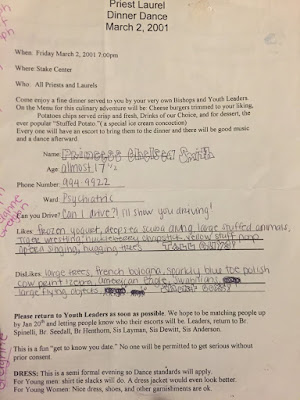 Priest Laurel
Dinner Dance
March 2, 2001
When: Friday March 2, 2001 7:00pm
Where: Stake Center
Who: All Priests and Laurels
Come enjoy a fine dinner served to you by your very own Bishops and Youth Leaders.
On the Menu for this culinary adventure will be: Cheese burgers trimmed to your liking,
Potatoes chips served crisp and fresh, Drinks of our Choice, and for dessert, the
ever popular "Stuffed Potato." (a special ice cream concoction)
Every one will have an escort to bring them to the dinner and there will be good music
and a dance afterward.
Name: Princess
Age: almost 17 1/2
Phone Number: 994-4922
Ward: Psychiatric
Can you Drive? Can I drive?! I'll show you driving!
Likes: frozen yogurt, deep sea scuba diving, large stuffed animals,
wrestling, huckleberry chapstick, yellow puff
opera singing, hugging trees
DisLikes: large trees, french bologna, sparkly blue toe polish
cow print
large flying objects
Please return to Youth Leaders as soon as possible. We hope to be matching people up
by Jan 20th and letting people know who their escorts will be. Leaders, return to Br.
Spinelli, Br. Seedall, Br Henthorn, Sis Layman, Sis Dewitt, Sis Anderson.
This is a fun "get to know you date." No one will be permitted to get serious without
prior consent.
DRESS: This is a semi formal evening so Dance standards will apply.
For Young men: shirt tie slacks will do. A dress jacket would even look better.
For Young Women: Nice dress, shoes, and other garnishments are ok.